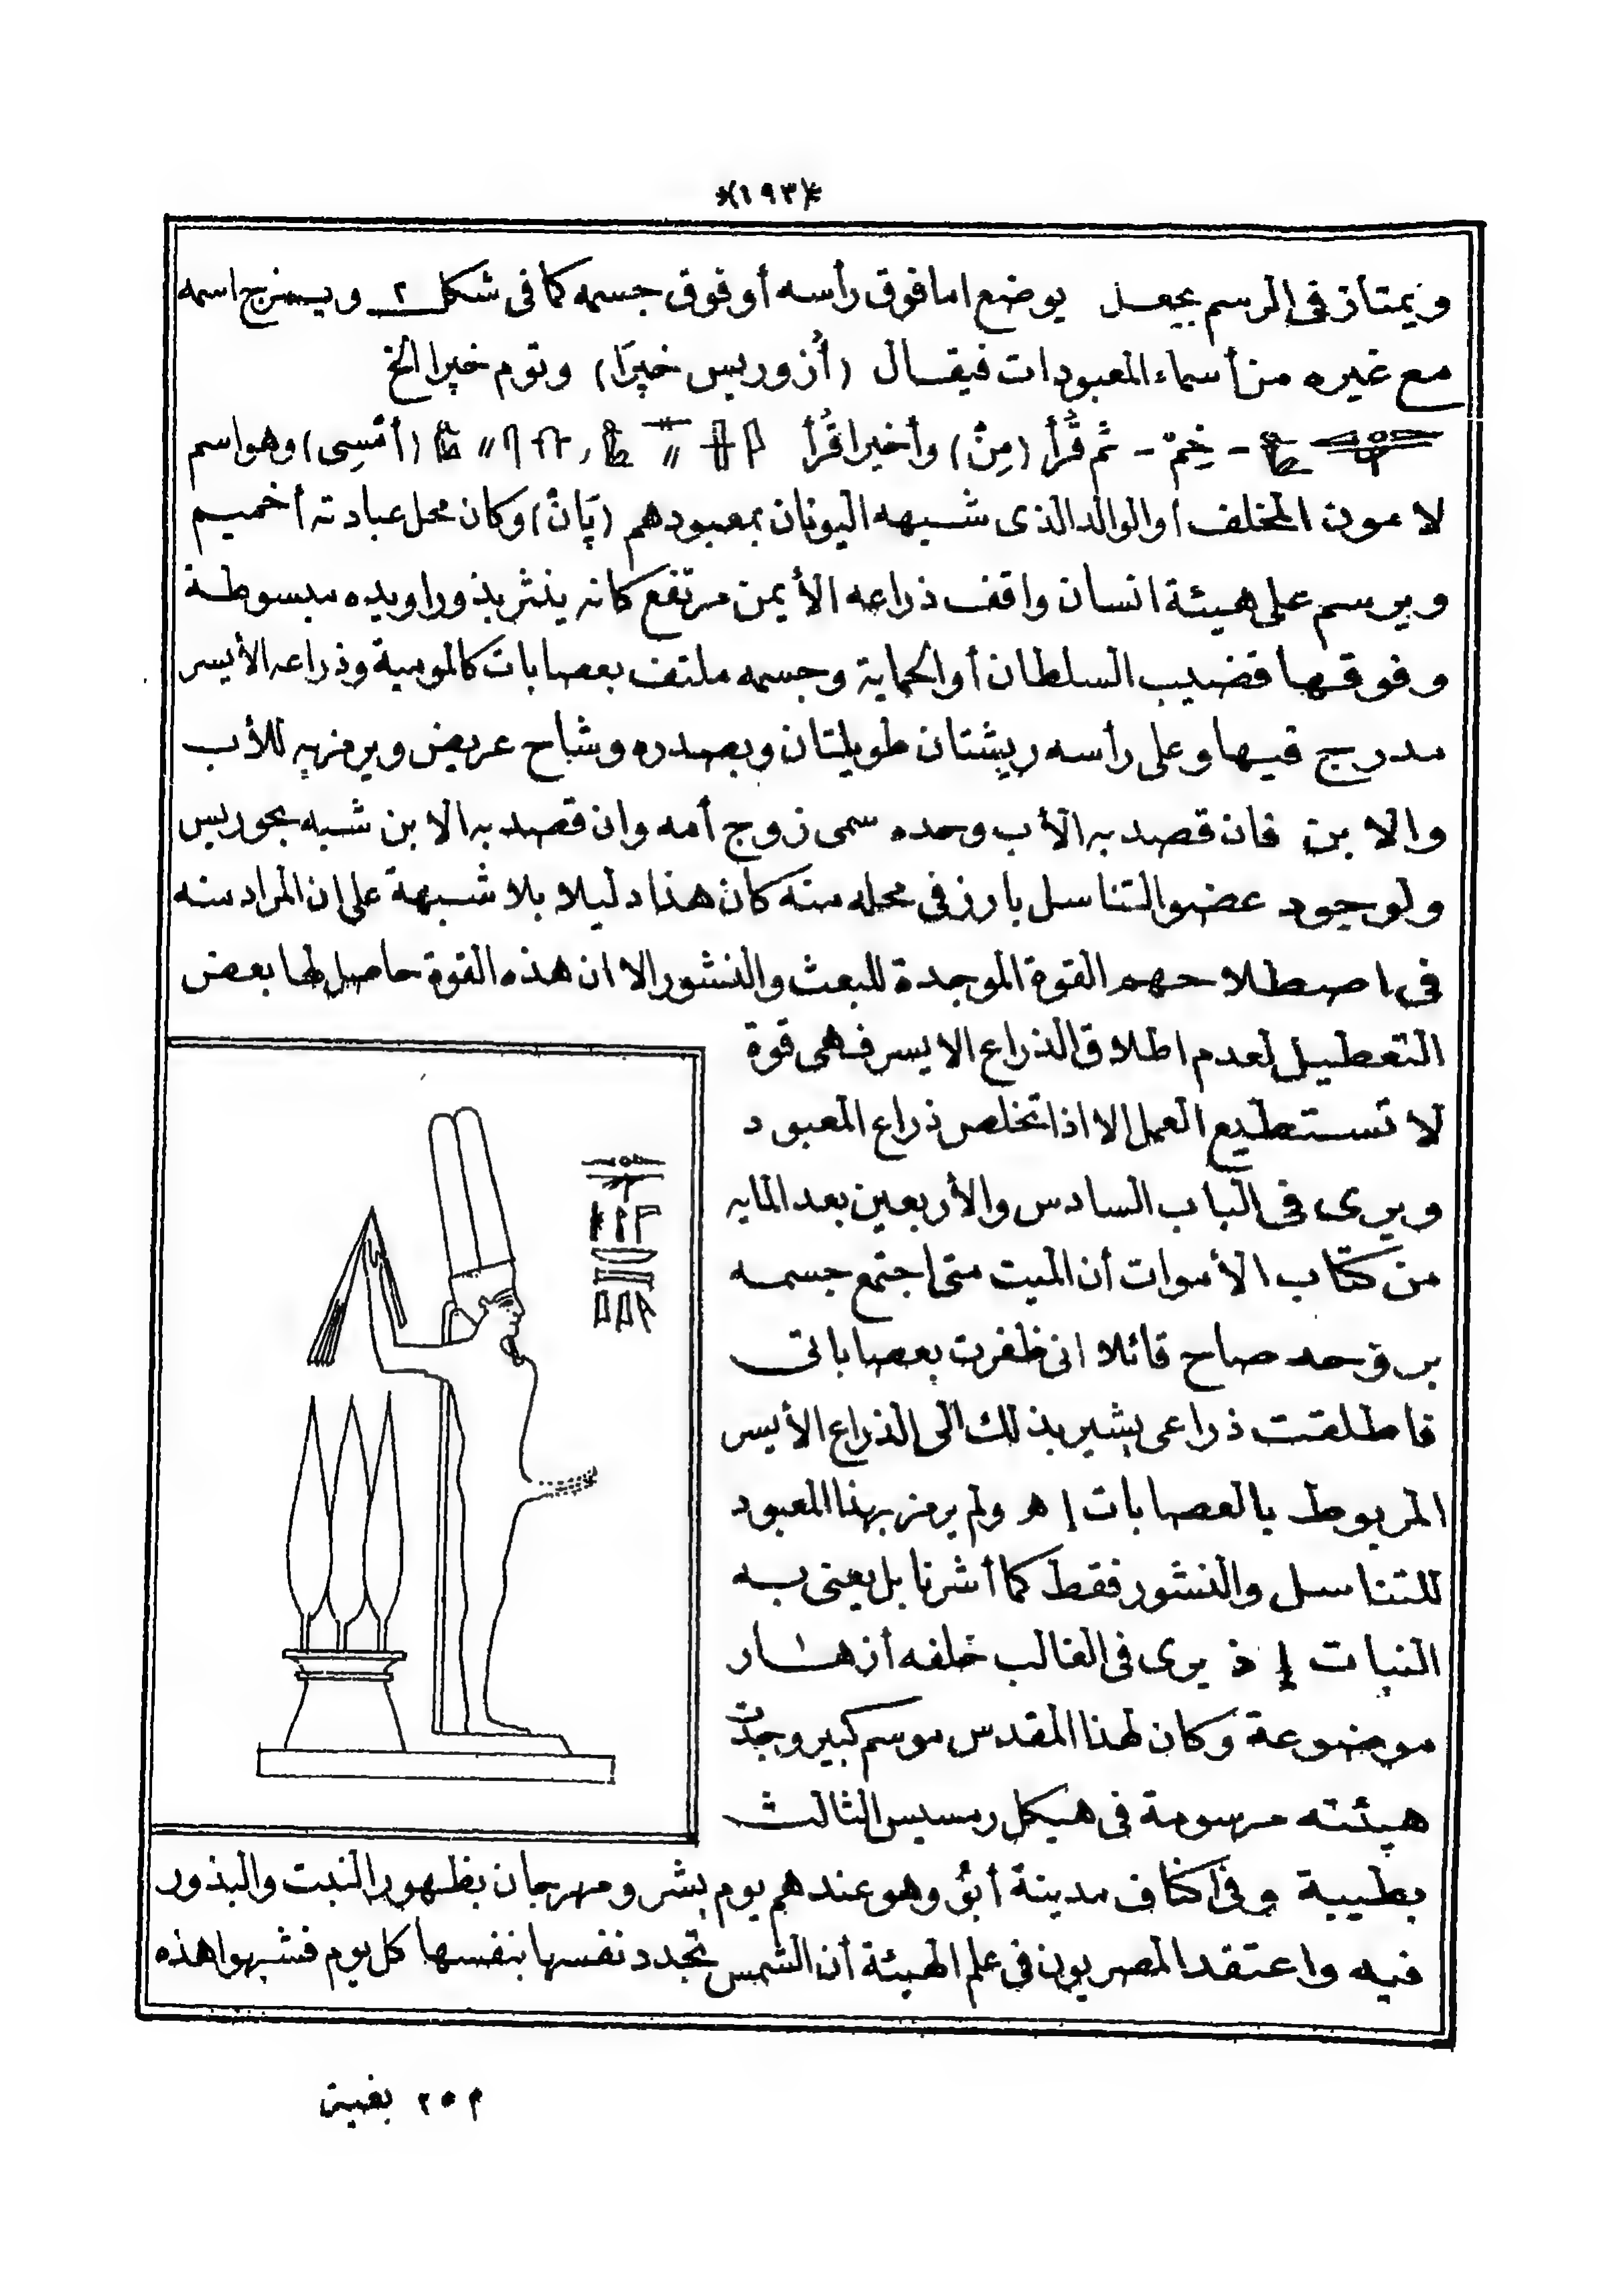 *(١٩٣)*
ويمتاز في الرسم بجعل يوضع اما فوق رأسه أو فوق جسمه كما في شكل ٢ ويمزج اسمه
مع غيره من أسماء المعبودات فيقال (أُزوريس خپرَا) وتوم خپرا الخ
- خِمْ - ثم قُرأ (مِنْ) وأخيرا قُرأ (أمْسِى) وهو اسم
لامون المخلف أو الوالد الذى شبهه اليونان بمعبودهم (پَانْ) وكان محل عبادته أخميم
ويرسم على هيئة انسان واقف ذراعه الأيمن مرتفع كانه ينثر بذورا ويده مبسوطة
وفوقها قضيب السلطان أو الحماية وجسمه ملتف بعصابات كالمومية وذراعه الأيسر
مدرج فيها وعلى رأسه ريشتان طويلتان وبصدره وشاح عريض ويرمز به للأب
والابن فان قصد به الأب وحده سمى زوج أمه وان قصد به الابن شبه بحوريس
ولوجود عضو التناسل بارز فى محله منه كان هذا دليلا بلا شبهة على ان المراد منه
فى اصطلاحهم القوة الموجدة للبعث والنشور الا ان هذه القوة حاصل لها بعض
التعطيل لعدم اطلاق الذراع الايسر فهى قوة
لا تستطيع العمل الا اذا تخلص ذراع المعبود
ويرى فى الباب السادس والأربعين بعد المايه
من كتاب الأموات أن الميت متى اجتمع جسمه
بروحه صاح قائلا انى ظفرت بعصاباتى
فاطلقت ذراعى يشير بذلك الى الذراع الأيسر
المربوط بالعصابات اه ولم يرمز بهذا المعبود
للتناسل والنشور فقط كما أشرنا بل يعنى به
النبات إذ يرى فى الغالب خلفه أزهار
موضوعة وكان لهذا المقدس موسم كبير وجدت
هيئته مرسومة فى هيكل رمسيس الثالث
بطيبة وفى اكناف مدينة أبُو وهو عندهم يوم بشر ومهرجان بظهور النبت والبذور
فيه واعتقد المصريون فى علم الهيئة أن الشمس تجدد نفسها بنفسها كل يوم فشبهوا هذه
م ٢٥ بغية